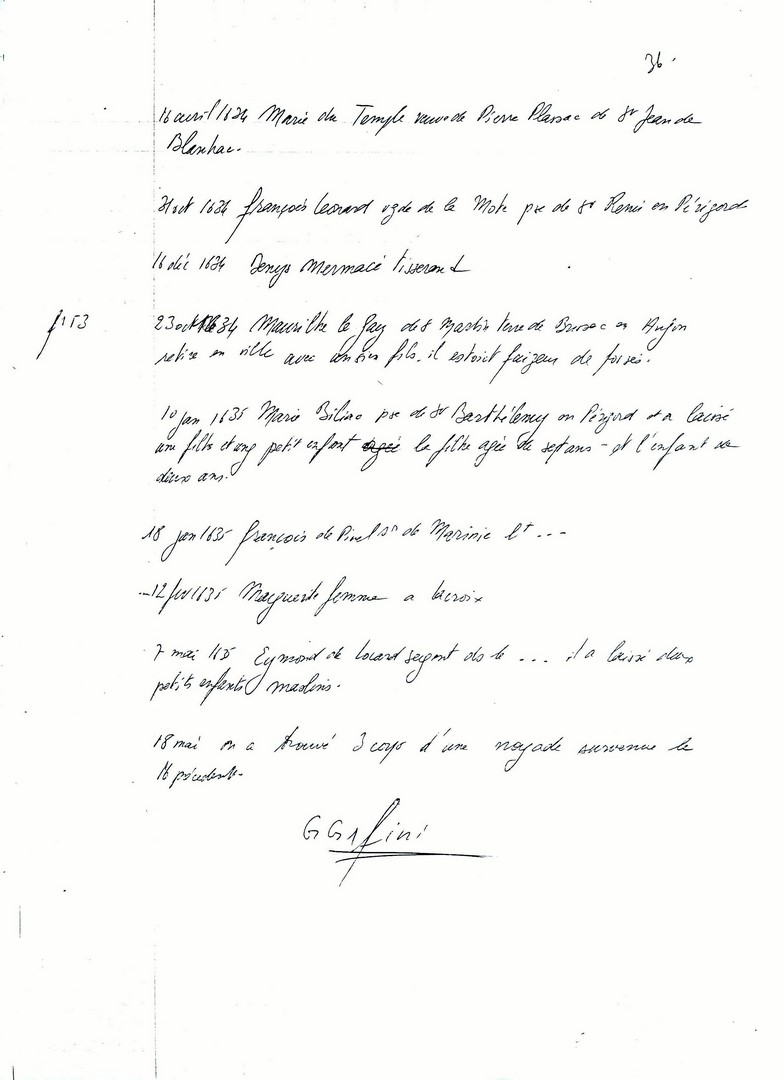 36.
16 avril 1634 Marie du Temple veuve de Pierre Plassac de St Jean de
Blanhac.
31 oct 1634 françois Leonard de la Mote pse de St Remi en Périgord
16 déc 1634 Denys Mermacé tisserand
f° 153
23 oct 1634 Maurille le Gay de St Martin terre de Brissac en Anjou
retiré en ville avec un sien fils. il estoit faizeur de
10 jan 1635 Marie Bilinc pse de St Barthélemy en Périgord et a laissé
une fille et ung petit enfant la fille agée de sept ans - et l'enfant de
deux ans.
18 jan 1635 françois de Sr de Marinie Lt ...
12 fev 1635 Marguerite femme a lacroix
7 mai 1635 Eymond de Locard sergent de le ... il a laissé deux
petits enfants maslins.
18 mai on a trouvé 3 corps d'une noyade survenue le
16 précédent.
GG 1 fini